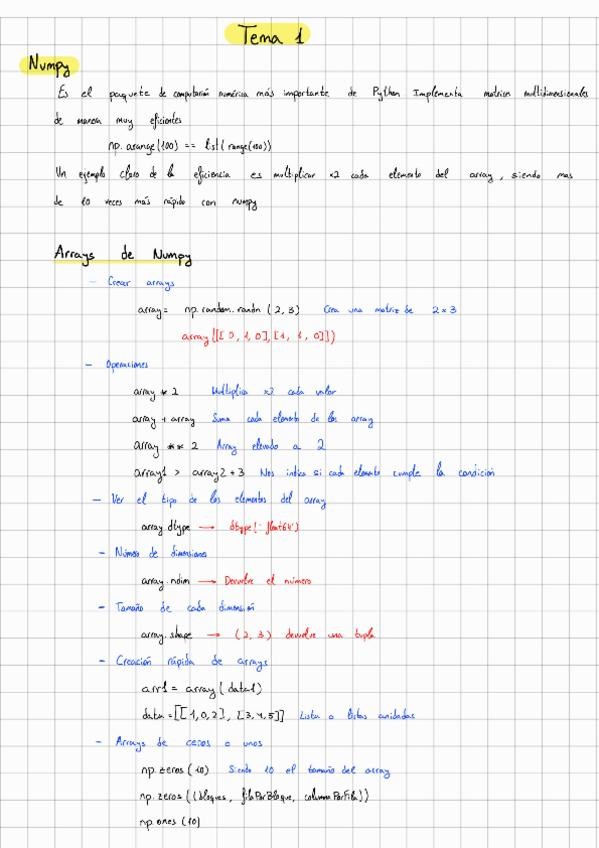 Tema 1
Numpy
Es el paquete de computación numérica más importante de Python Implementa matrices multidimensionales
de manera muy eficientes
np.arange(100) == list(range(100))
Un ejemplo claro de la eficiencia es multiplicar x2 cada elemento del array, siendo mas
de 10 veces más rápido con numpy
Arrays de Numpy
- Crear arrays
array = np.random.randn(2,3) Crea una matriz de 2x3
array([[0,1,0],[1,1,0]])
- Operaciones
array * 2 Multiplica x2 cada valor
array + array Suma cada elemento de los array
array ** 2 Array elevado a 2
array1 > array2 + 3 Nos indica si cada elemento cumple la condición
- Ver el tipo de los elementos del array
array.dtype → dtype('float64')
- Número de dimensiones
array.ndim → Devuelve el número
- Tamaño de cada dimensión
array.shape → (2,3) devuelve una tupla
- Creación rápida de arrays
arr1 = array(data1)
data = [[1,0,2], [3,4,5]] Lista o listas anidadas
- Arrays de ceros o unos
np.zeros(10) Siendo 10 el tamaño del array
np.zeros((bloques, filaPorBloque, columnaPorFila))
np.ones(10)